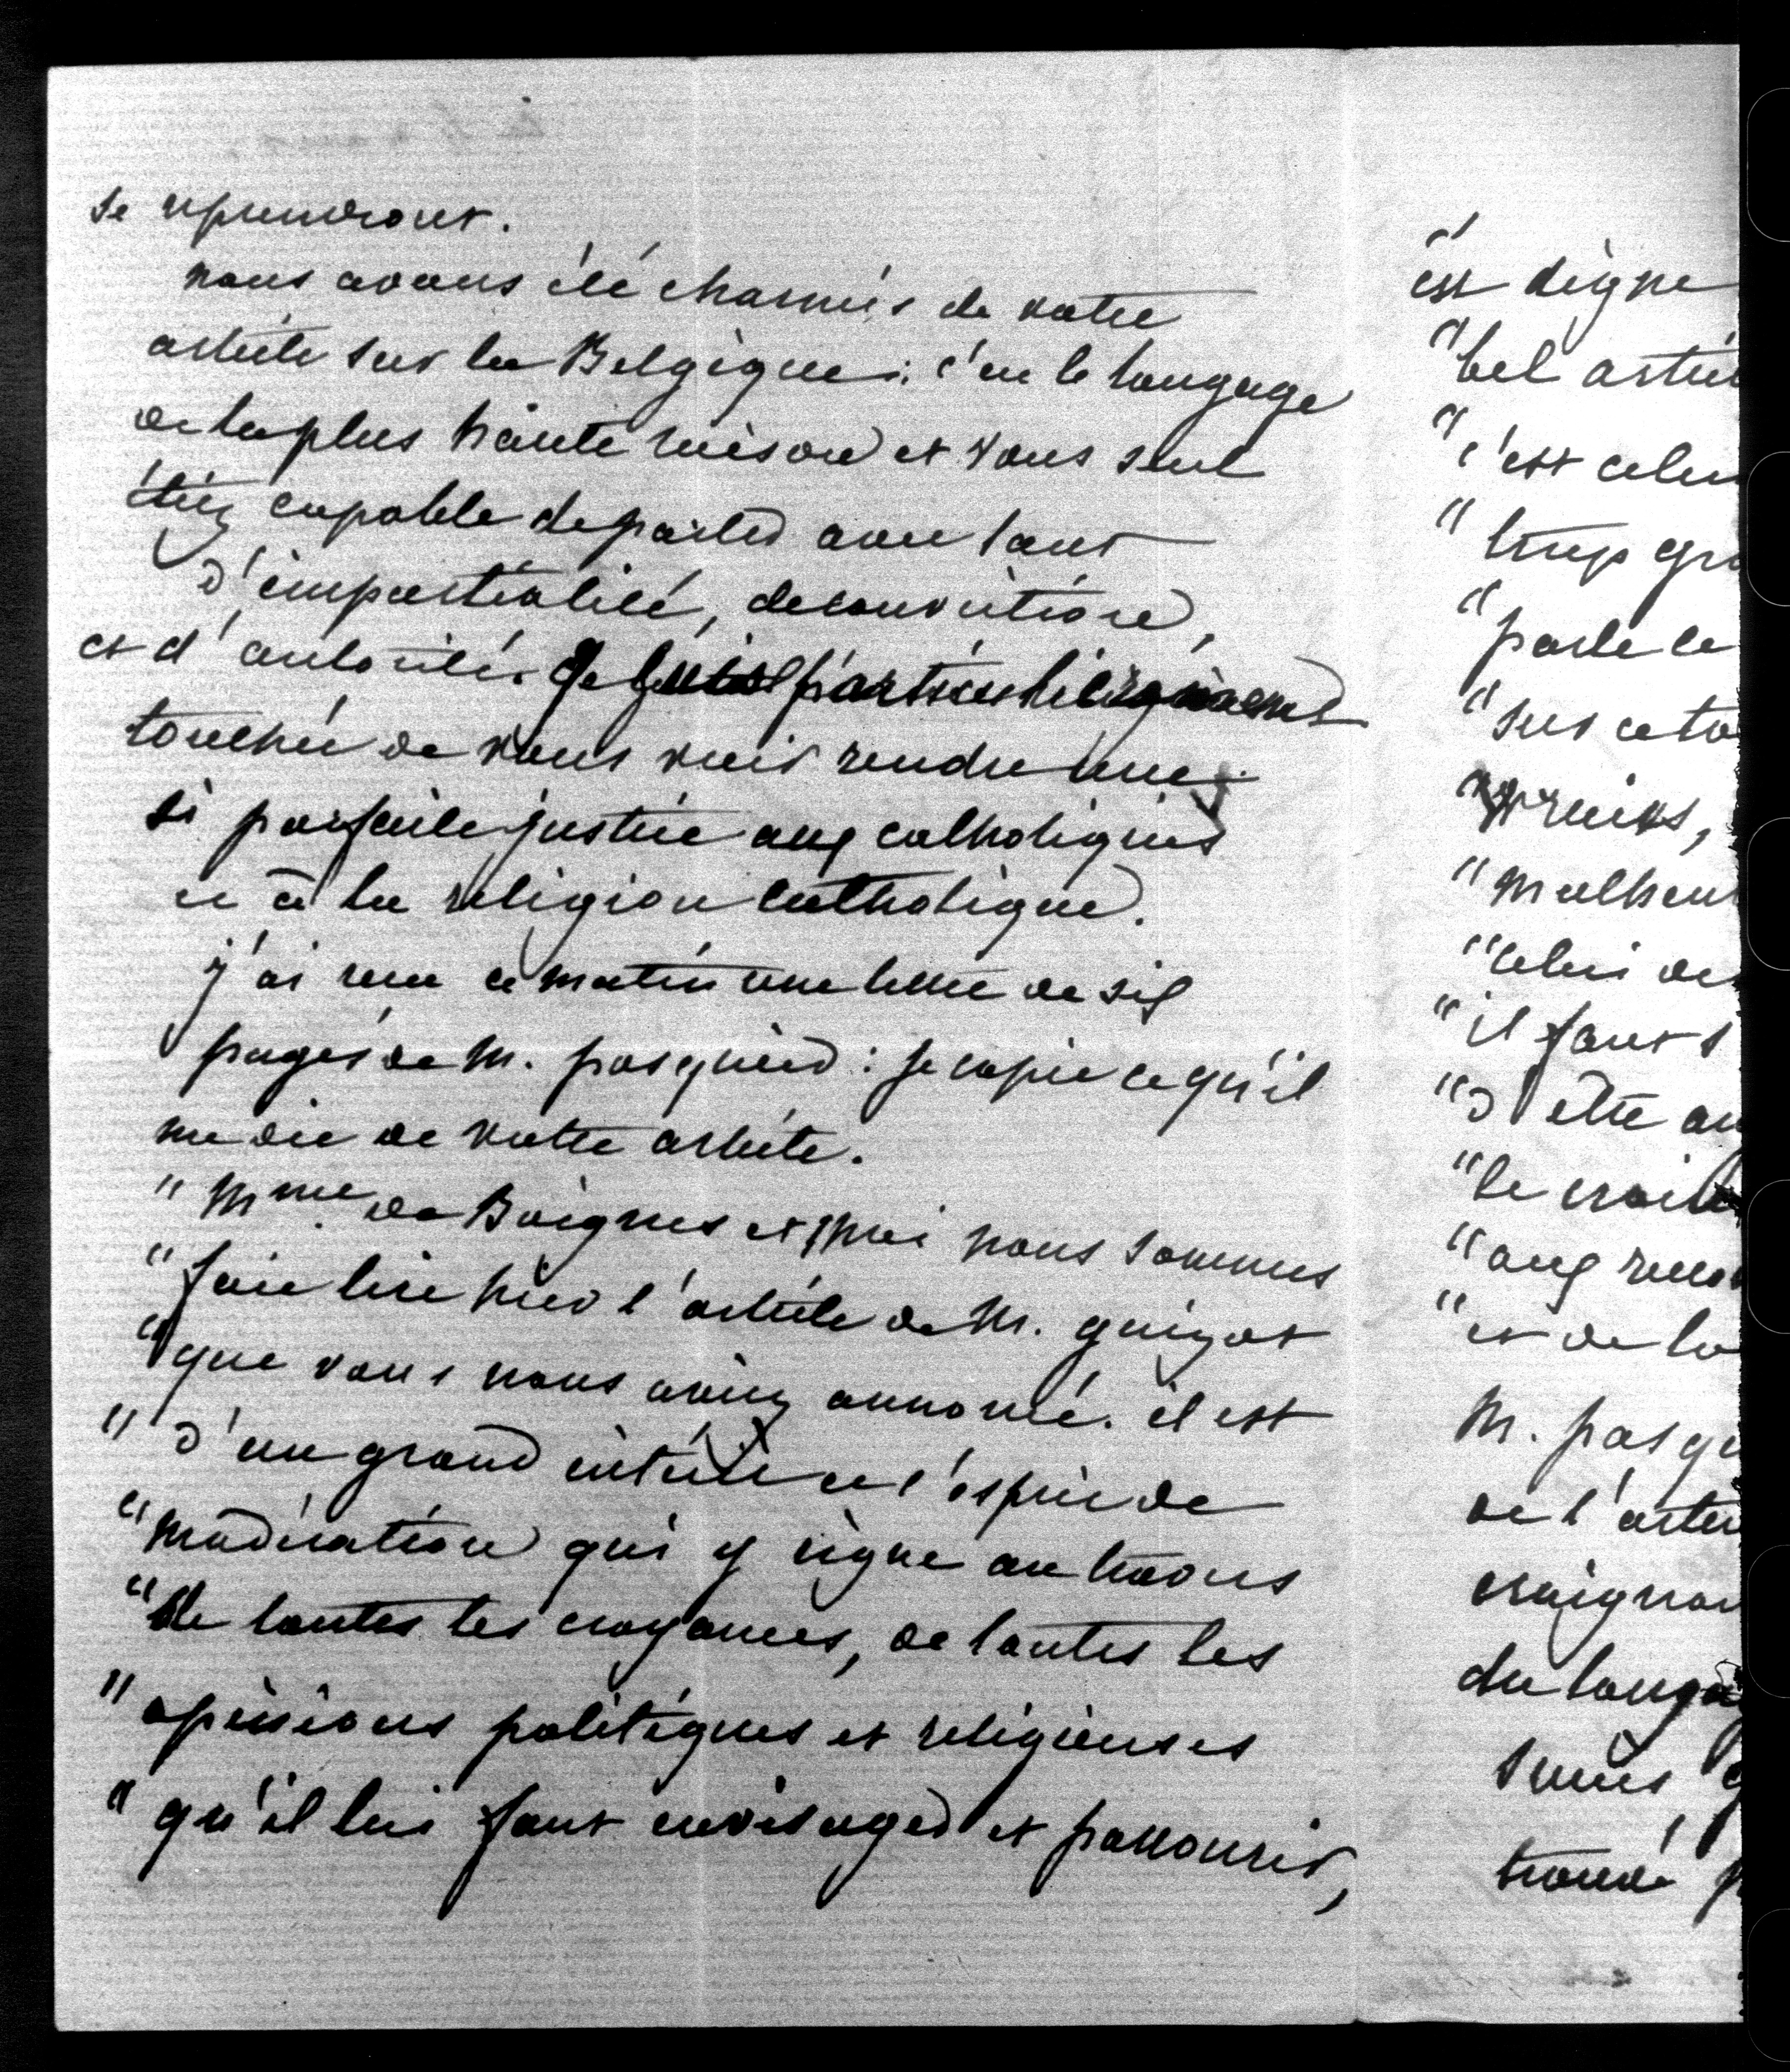 se reprendront.
nous avons été charmés de votre
article sur la Belgique: c'est le langage
de la plus haute raison et vous seul
étiez capable de parler avec tant
d'impartialité, de conviction,
et d'autorité. Je suis particulièrement
touchée de vous voir rendre une
si parfaite justice aux catholiques
et à la religion catholique.
j'ai reçu ce matin une lettre de six
pages de M. pasquier: je copie ce qu'il
me dit de votre article.
" Mme de Boignes et moi nous sommes
" fait lire hier l'article de M. guizot
" que vous nous aviez annoncé. il est
" d'un grand intérêt et l'esprit de
" modération qui y règne au travers
" de toutes les croyances, de toutes les
" opinions politiques et religieuses
" qu'il lui faut envisager et parcourir,
est digne
" bel artic
" c'est celui
" trop gra
" parle le
" sur ce to
" malheu
" celui de
" il faut s
" d'être au
" le croit
" aux
" et de la
M. pasqu
de l'artic
craignan
du langa
trouvé